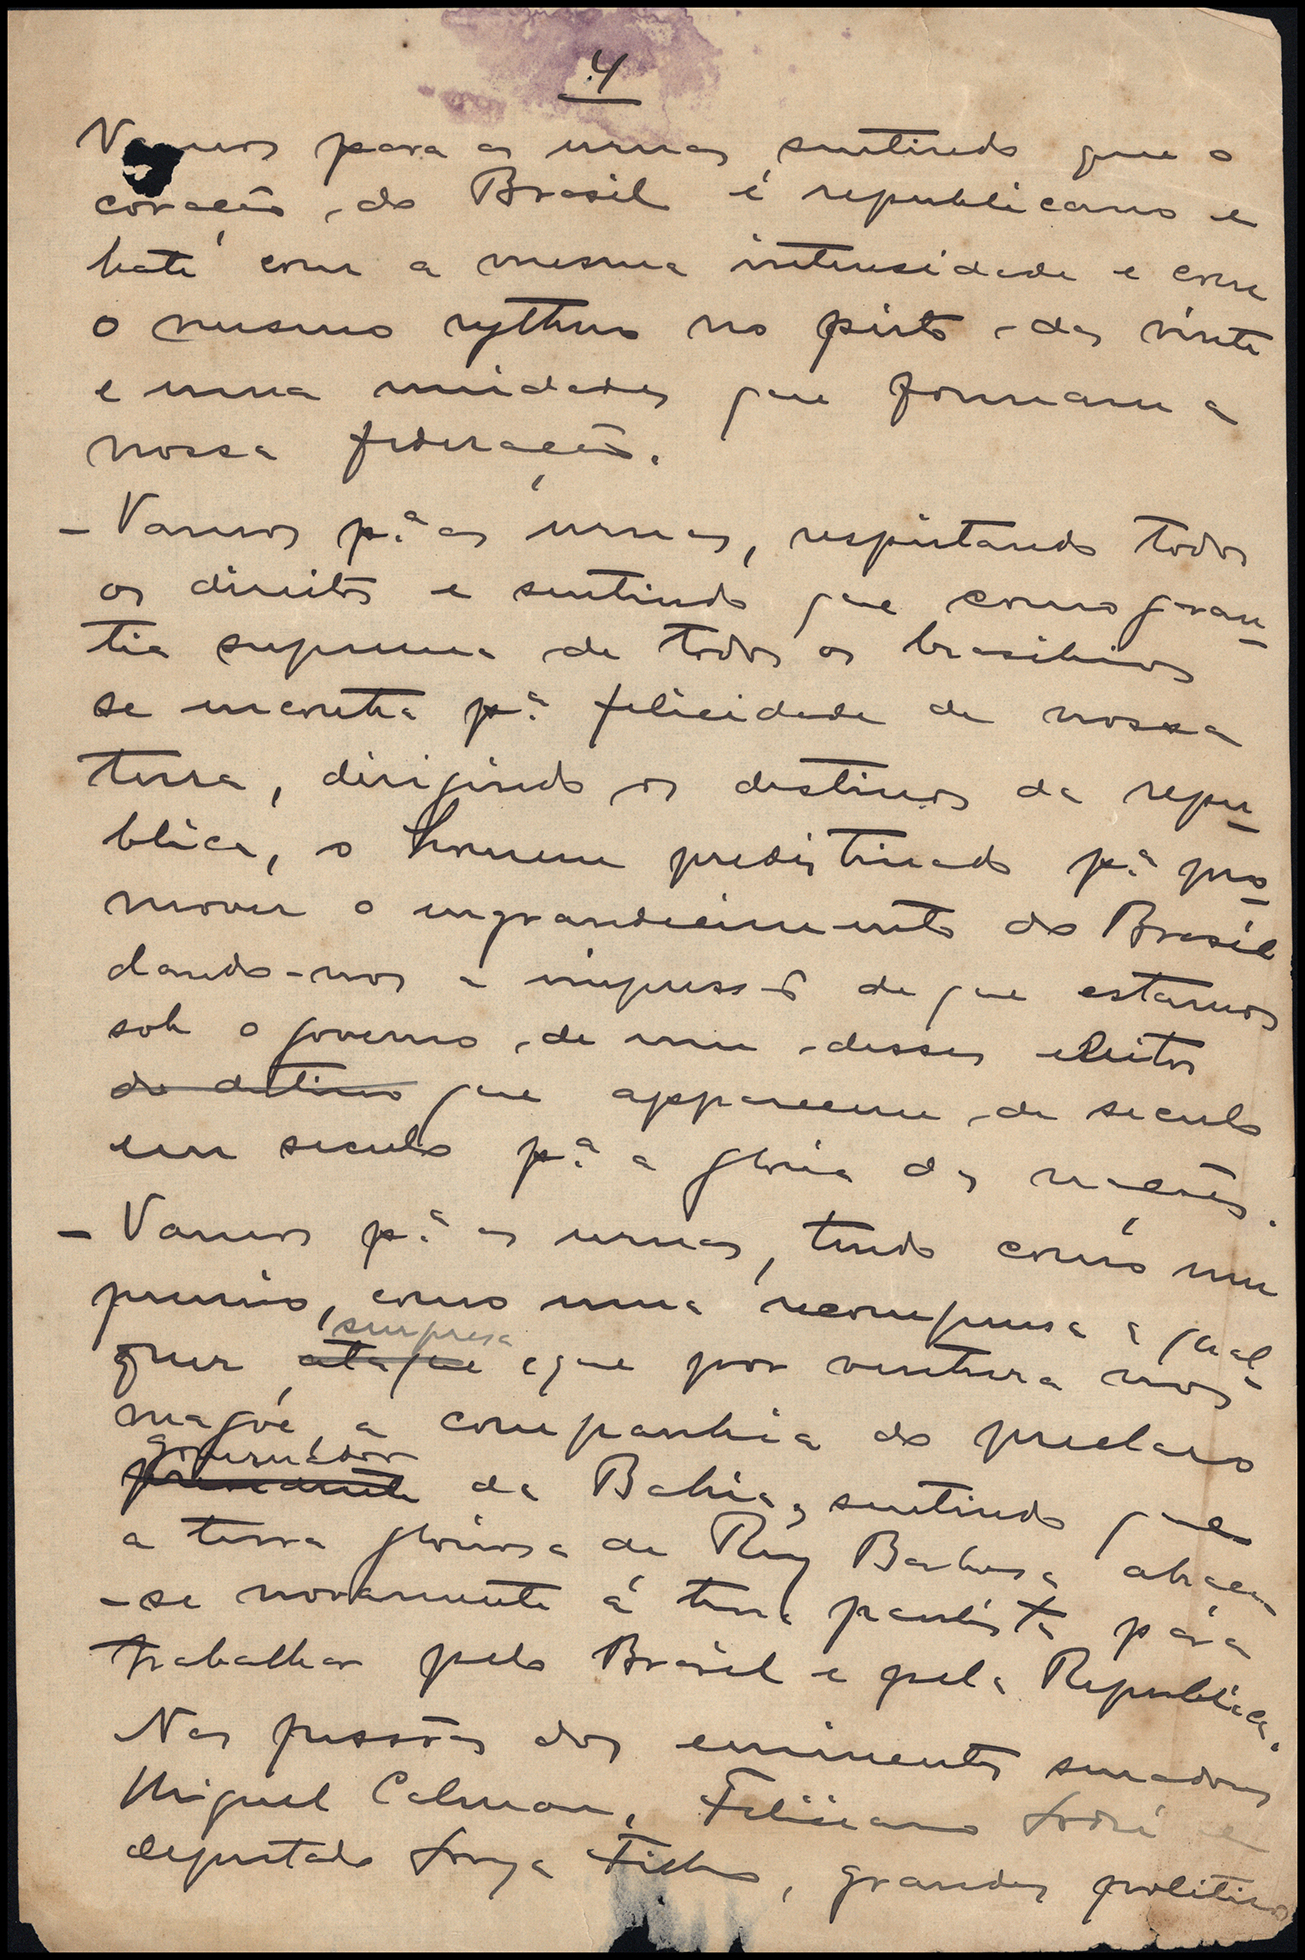 4
Vamos para as urnas sentindo que o
coração do Brasil é republicano e
bate com a mesma intensidade e com
o mesmo rythmo no peito das vinte
e uma unidades que formam a
nossa federação.
- Vamos pª as urnas, respeitando todos
os direitos e sentindo que como garan-
tia suprema de todos os brasileiros
se encontra pª felicidade de nossa
terra, dirigindo os destinos da repu-
blica, o homem predestinado pª pro-
mover o engrandecimento do Brasil
dando-nos a impressão de que estamos
sob o governo de um desses eleitos
do destino que apparecem de seculo
em seculo pª a gloria das nações.
- Vamos pª as urnas, tendo como um
premio, como uma recompensa a qual-
surpresa
quer ataque que por ventura nos
magôe, a companhia do preclaro
governador
presidente da Bahia, sentindo que
a terra gloriosa de Ruy Barbosa abraça
-se novamente á terra paulista para
trabalhar pelo Brasil e pela Republica.
Nas pessôas dos eminentes senadores
Miguel Calmon, Feliciano Sodré e
deputado Souza Filho, grandes politicos